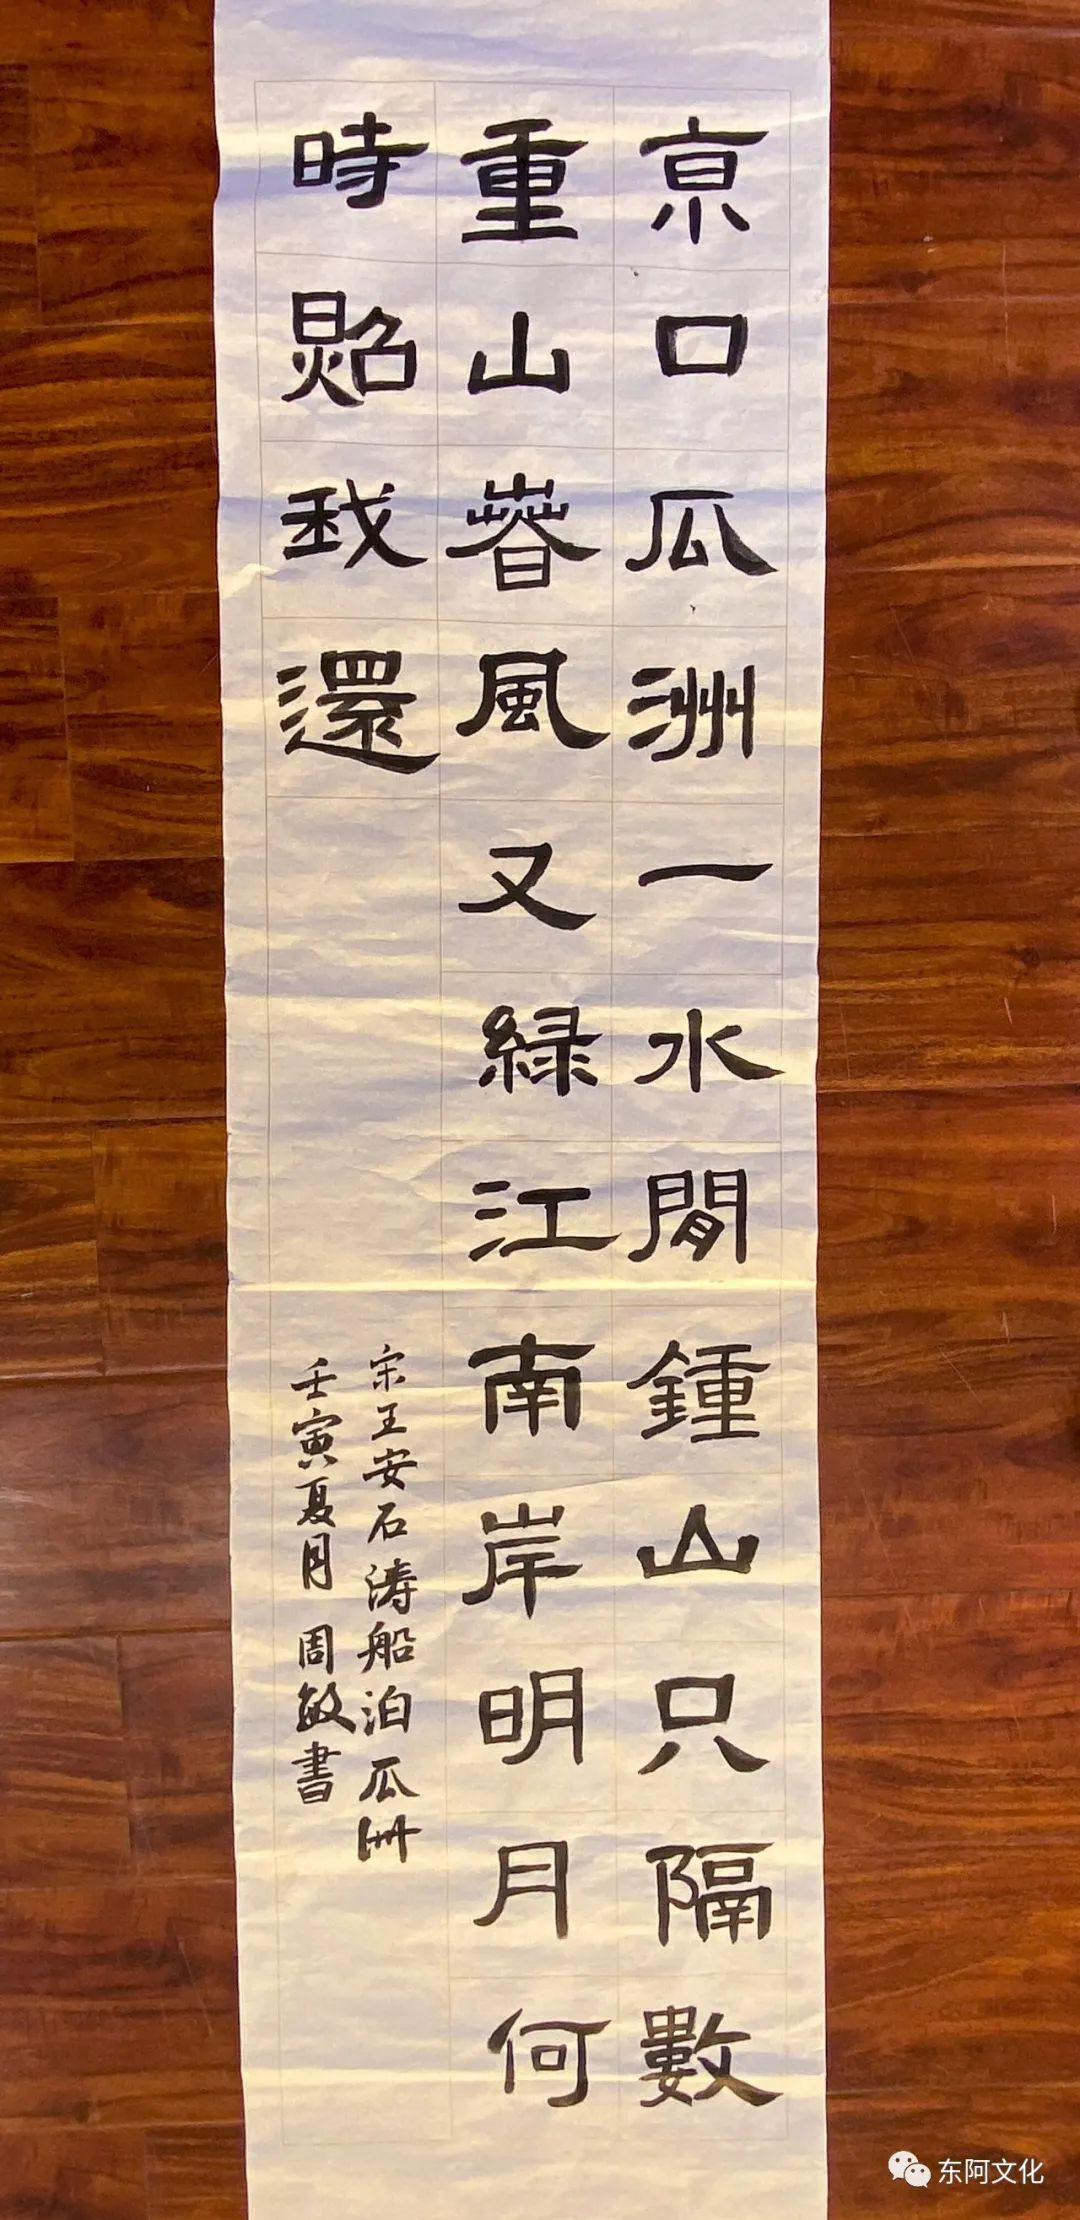 京口瓜洲一水間鍾山只隔數
重山萅風又緑江南岸明月何
時照我還
宋王安石涛船泊瓜洲
壬寅夏月 周敏書
东阿文化